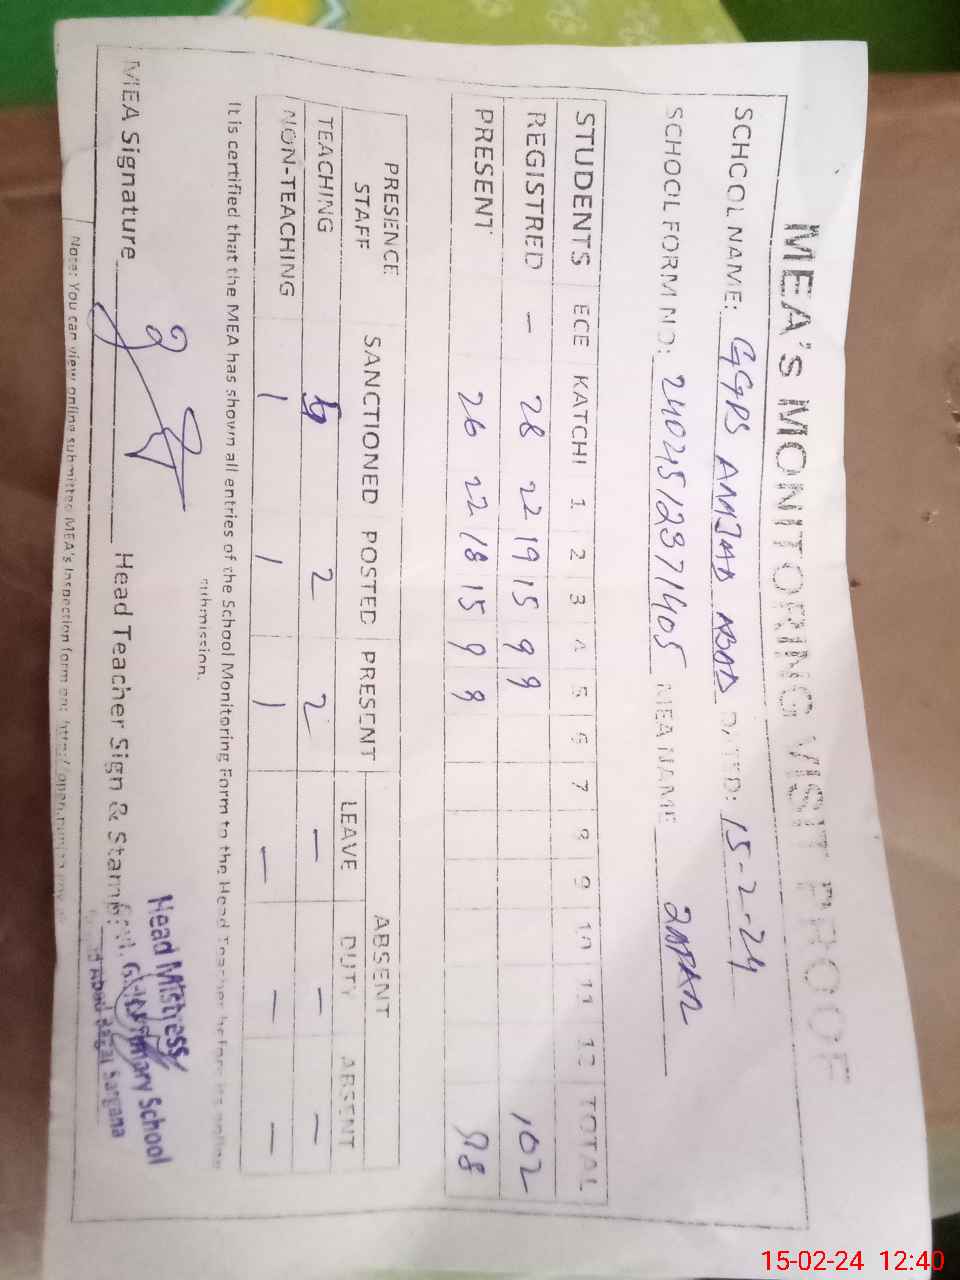 MEA'S MONITORING VISIT PROOF
SCHOOL NAME: GGPS AMJAD ABAD DATED: 15-2-24
SCHOOL FORM NO: 24024512371405 MEA NAME ZAFAR
STUDENTS ECE KATCHI 1 2 3 4 5 6 7 8 9 10 11 12 TOTAL
REGISTRED – 28 22 19 15 9 9 102
PRESENT 26 22 18 15 9 8 98
PRESENCE STAFF SANCTIONED POSTED PRESENT ABSENT
LEAVE DUTY ABSENT
TEACHING 2 2 – – –
NON-TEACHING 1 1 1 – – –
It is certified that the MEA has shown all entries of the School Monitoring Form to the Head Teacher before its online
submission.
MEA Signature Head Teacher Sign & Stamp:
Head Mistress
Primary School
Abad Bagar Sargana
Note: You can view online submitted MEA's Inspection form on: http://open.punjab.gov.pk
15-02-24 12:40